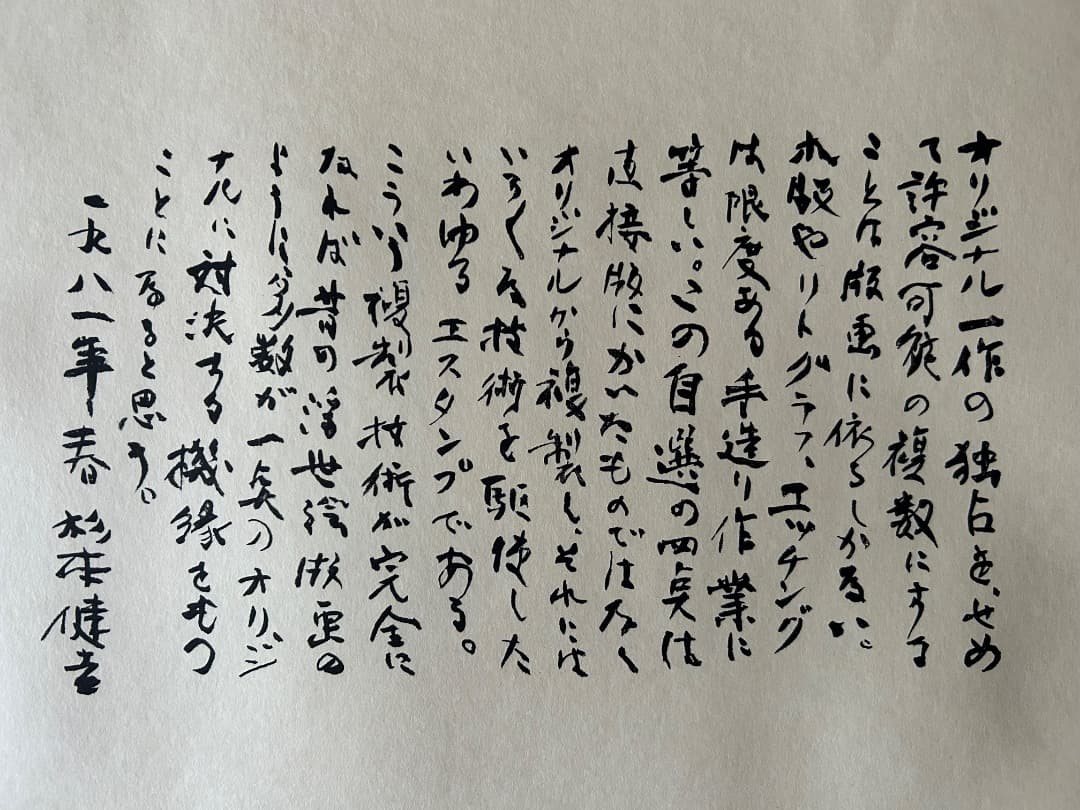 オリジナル一作の独占を、せめ
て許容可能の複数にする
ことは版画に依るしかない。
木版やリトグラフ、エッチング
は限度ある手造り作業に
等しい。この自選の四点は
直接版にかいたものではなく
オリジナルから複製し、それには
いろいろな技術を駆使した
いわゆるエスタンプである。
こういう複製技術が完全に
なれば昔の浮世絵版画の
ように多数が一点のオリジ
ナルに対決する機縁をもつ
ことになると思う。
一九八一年 春 杉本健吉